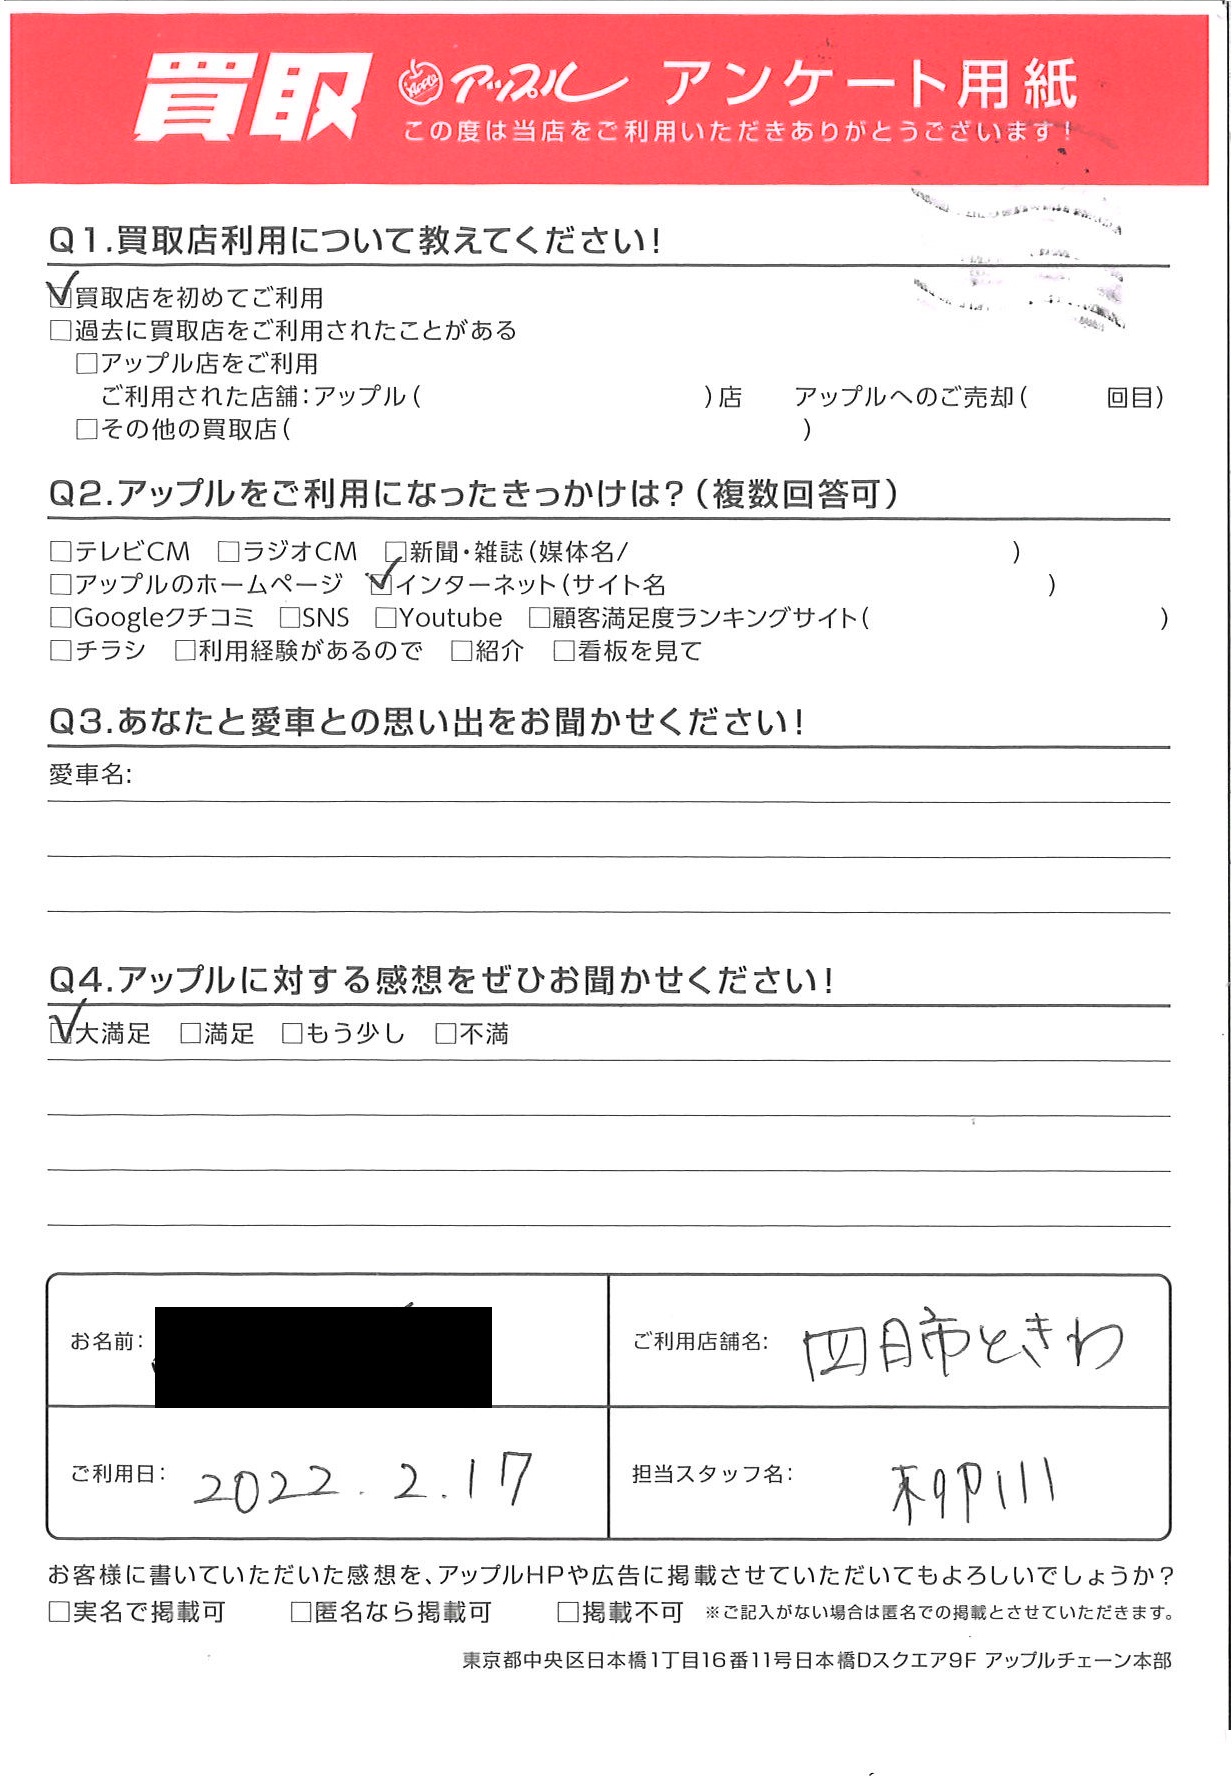 買取 Apple アップル アンケート用紙
この度は当店をご利用いただきありがとうございます!
Q1.買取店利用について教えてください!
☑買取店を初めてご利用
□過去に買取店をご利用されたことがある
□アップル店をご利用
ご利用された店舗:アップル( )店 アップルへのご売却( 回目)
□その他の買取店( )
Q2.アップルをご利用になったきっかけは?(複数回答可)
□テレビCM □ラジオCM □新聞・雑誌(媒体名/ )
□アップルのホームページ ☑インターネット(サイト名 )
□Googleクチコミ □SNS □Youtube □顧客満足度ランキングサイト( )
□チラシ □利用経験があるので □紹介 □看板を見て
Q3.あなたと愛車との思い出をお聞かせください!
愛車名:
Q4.アップルに対する感想をぜひお聞かせください!
☑大満足 □満足 □もう少し □不満
お名前:
ご利用店舗名: 四日市ときわ
ご利用日: 2022.2.17
担当スタッフ名: 柳川
お客様に書いていただいた感想を、アップルHPや広告に掲載させていただいてもよろしいでしょうか?
□実名で掲載可 □匿名なら掲載可 □掲載不可 ※ご記入がない場合は匿名での掲載とさせていただきます。
東京都中央区日本橋1丁目16番11号日本橋Dスクエア9F アップルチェーン本部